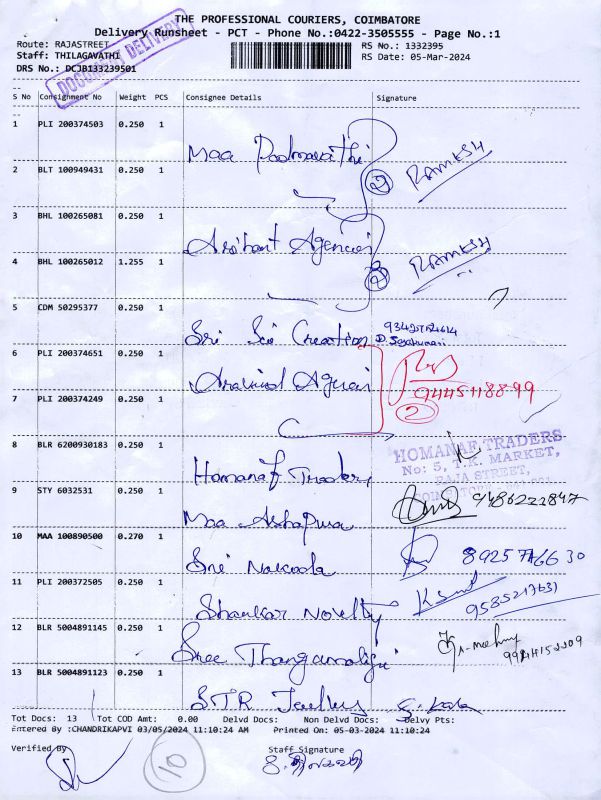 THE PROFESSIONAL COURIERS, COIMBATORE
Delivery Runsheet - PCT - Phone No.:0422-3505555 - Page No.:1
Route: RAJASTREET RS No.: 1332395
Staff: THILAGAVATHI RS Date: 05-Mar-2024
DRS No.: DCJB133239501
DOCUMENT DELIVERY
S No Consignment No Weight PCS Consignee Details Signature
1 PLI 200374503 0.250 1
Maa Padmavathi
2 BLT 100949431 0.250 1 2 RAMESH
3 BHL 100265081 0.250 1
Arihant Agencies
4 BHL 100265012 1.255 1 2 RAMESH
5 CDM 50295377 0.250 1
Sri Sai Creation
6 PLI 200374651 0.250 1
Aravind Agencies
9445118899
7 PLI 200374249 0.250 1 2
8 BLR 6200930183 0.250 1
HOMANAF TRADERS
No: 5, T.K. MARKET,
RAJA STREET,
Homanaf Traders
9 STY 6032531 0.250 1
Maa Ashapura
10 MAA 100890500 0.270 1
Sri Nakoda
11 PLI 200372505 0.250 1
Shankar Novelty
12 BLR 5004891145 0.250 1
Sree Thangamaligai
13 BLR 5004891123 0.250 1
STR Jewllers S. Kala
Tot Docs: 13 Tot COD Amt: 0.00 Delvd Docs: Non Delvd Docs: Delvy Pts:
Entered By :CHANDRIKAPVI 03/05/2024 11:10:24 AM Printed On: 05-03-2024 11:10:24
Verified By Staff Signature
10